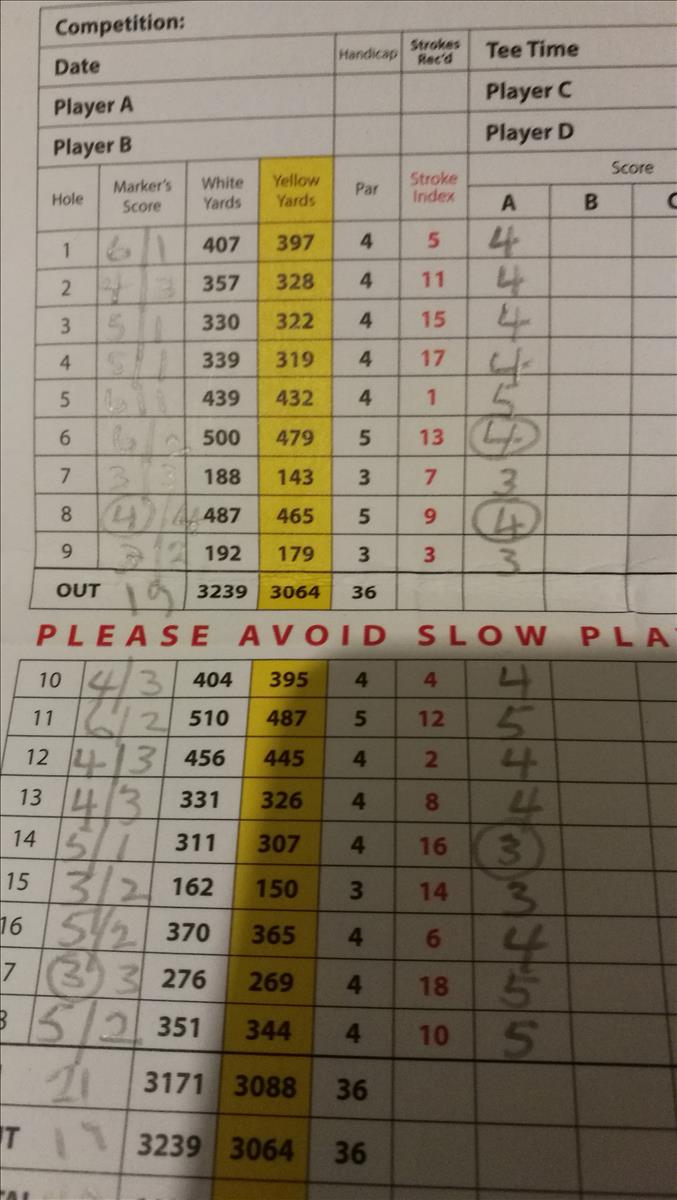 Competition:
Date Handicap Strokes Rec'd Tee Time
Player A Player C
Player B Player D
Hole Marker's Score White Yards Yellow Yards Par Stroke Index Score
A B C
1 6/1 407 397 4 5 4
2 4/3 357 328 4 11 4
3 5/1 330 322 4 15 4
4 5/1 339 319 4 17 4
5 6/1 439 432 4 1 5
6 6/2 500 479 5 13 4
7 3/3 188 143 3 7 3
8 4/4 487 465 5 9 4
9 3/2 192 179 3 3 3
OUT 19 3239 3064 36
PLEASE AVOID SLOW PLA
10 4/3 404 395 4 4 4
11 6/2 510 487 5 12 5
12 4/3 456 445 4 2 4
13 4/3 331 326 4 8 4
14 5/1 311 307 4 16 3
15 3/2 162 150 3 14 3
16 5/2 370 365 4 6 4
7 3 3 276 269 4 18 5
8 5/2 351 344 4 10 5
21 3171 3088 36
UT 19 3239 3064 36